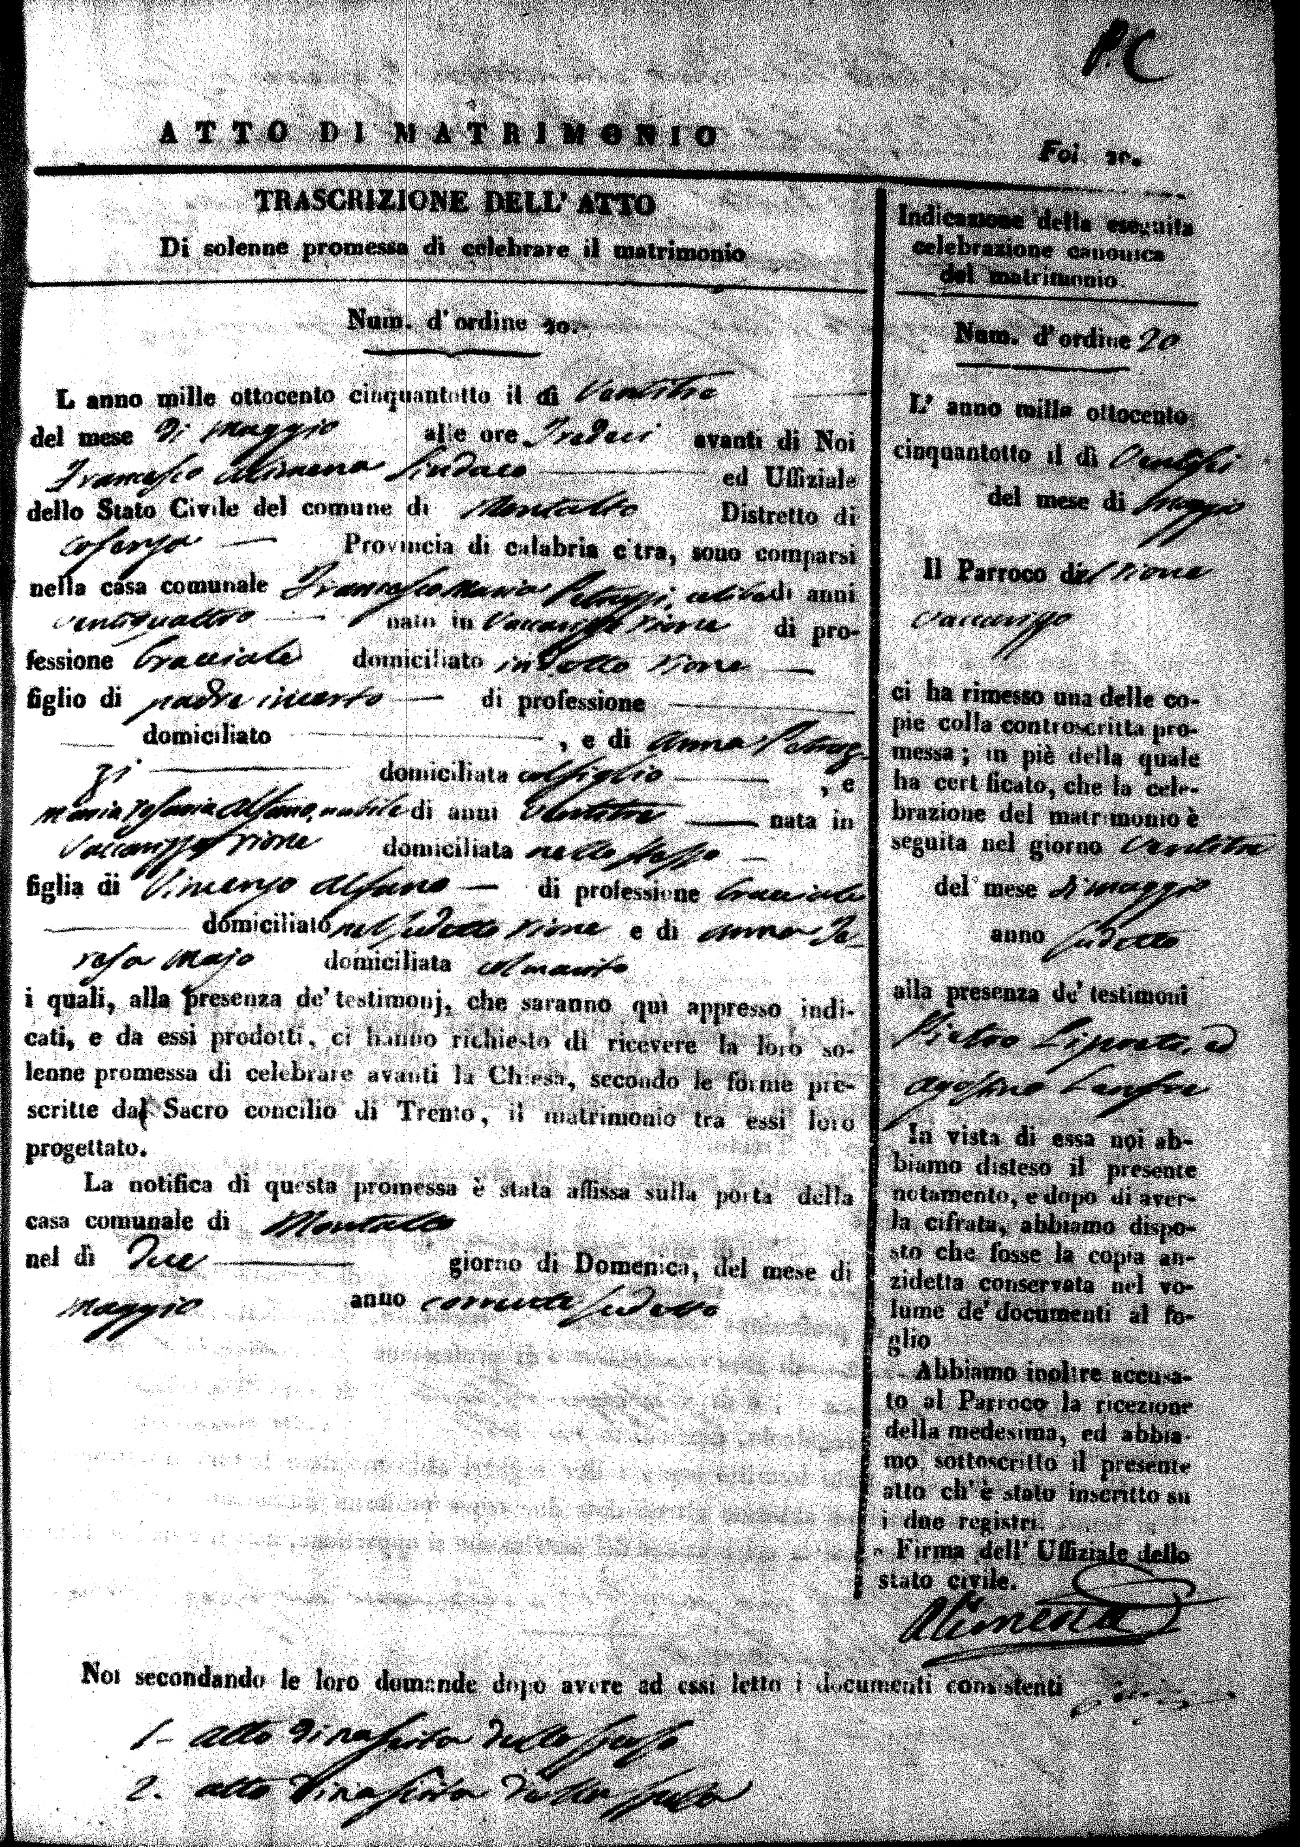 P. C
ATTO DI MATRIMONIO
Fol. 20.
TRASCRIZIONE DELL' ATTO
Di solenne promessa di celebrare il matrimonio
Num. d'ordine 20.
L anno mille ottocento cinquantotto il dì Ventitre
del mese di Maggio alle ore Tredeci avanti di Noi
Francesco Alimena Sindaco ed Uffiziale
dello Stato Civile del comune di Montalto Distretto di
Cosenza Provincia di calabria citra, sono comparsi
nella casa comunale Francesco Maria Petruzzi, celibe di anni
ventiquattro nato in Vaccarizzo rione di pro-
fessione bracciale domiciliato in detto rione
figlio di padre incerto di professione
domiciliato , e di Anna Petruz-
zi domiciliata col figlio , e
Maria Rosaria Alfano, nubile di anni Ventitre nata in
Vaccarizzo rione domiciliata nello stesso
figlia di Vincenzo Alfano di professione bracciale
domiciliato nel sudetto rione e di Anna Te-
resa Majo domiciliata col marito
i quali, alla presenza de' testimonj, che saranno quì appresso indi-
cati, e da essi prodotti, ci hanno richiesto di ricevere la loro so-
lenne promessa di celebrare avanti la Chiesa, secondo le forme pre-
scritte dal Sacro concilio di Trento, il matrimonio tra essi loro
progettato.
La notifica di questa promessa è stata affissa sulla porta della
casa comunale di Montalto
nel dì Due giorno di Domenica, del mese di
Maggio anno corrente sudetto
Indicazione della eseguita
celebrazione canonica
del matrimonio.
Num. d'ordine 20
L' anno mille ottocento
cinquantotto il dì Ventisei
del mese di Maggio
Il Parroco del rione
Vaccarizzo
ci ha rimesso una delle co-
pie colla controscritta pro-
messa; in piè della quale
ha certificato, che la cele-
brazione del matrimonio è
seguita nel giorno Ventitre
del mese di maggio
anno sudetto
alla presenza de' testimoni
Pietro Liporta, ed
Agostino
In vista di essa noi ab-
biamo disteso il presente
notamento, e dopo di aver-
la cifrata, abbiamo dispo-
sto che fosse la copia an-
zidetta conservata nel vo-
lume de' documenti al fo-
glio
Abbiamo inoltre accusa-
to al Parroco la ricezione
della medesima, ed abbia-
mo sottoscritto il presente
atto ch' è stato inscritto su
i due registri.
Firma dell' Uffiziale dello
stato civile.
Alimena
Noi secondando le loro domande dopo avere ad essi letto i documenti consistenti
1- Atto di nascita dello sposo
2. Atto di nascita della sposa